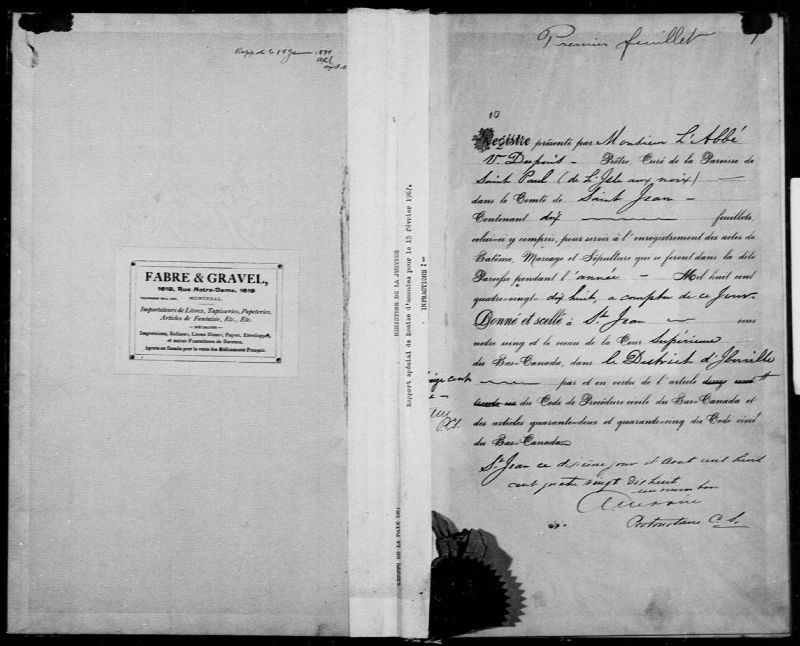 Rapp de le 18 Janv 1899
FABRE & GRAVEL,
1619, Rue Notre-Dame, 1619
MONTREAL.
Importateurs de Livres, Tapisseries, Papeteries,
Articles de Fantaisie, Etc., Etc.
Impressions, Reliure, Livres Blancs, Papier, Enveloppes,
et autres Fournitures de Bureau.
Agents au Canada pour la vente des Médicaments Français.
GREFFE DE LA PAIX
MINISTERE DE LA JUSTICE
Rapport spécial de Remise d'amendes pour le 15 février 1967.
INFRACTIONS:-
Premier feuillet
10
Registre présenté par Monsieur L'Abbé
V. Dupuis - Prêtre, Curé de la Paroisse de
Saint Paul (de L'Isle aux noix)
dans le Comté de Saint Jean -
Contenant dix feuillets,
celui-ci y compris, pour servir à l'enregistrement des actes de
Batême, Mariage et Sépulture qui se feront dans la dite
Paroisse pendant l'année - Mil huit cent
quatre-vingt dix huit, a compter de ce jour.
Donné et scellé à St Jean - sous
notre seing et le sceau de la Cour Supérieure
du Bas-Canada, dans le District d'Iberville
par et en vertu de l'article
du Code de Procédure civile du Bas-Canada et
des articles quarante-deux et quarante-cinq du Code civil
du Bas-Canada
St Jean ce dixième jour d'Aout mil huit
cent quatre vingt dix huit
Protonotaire C. S.